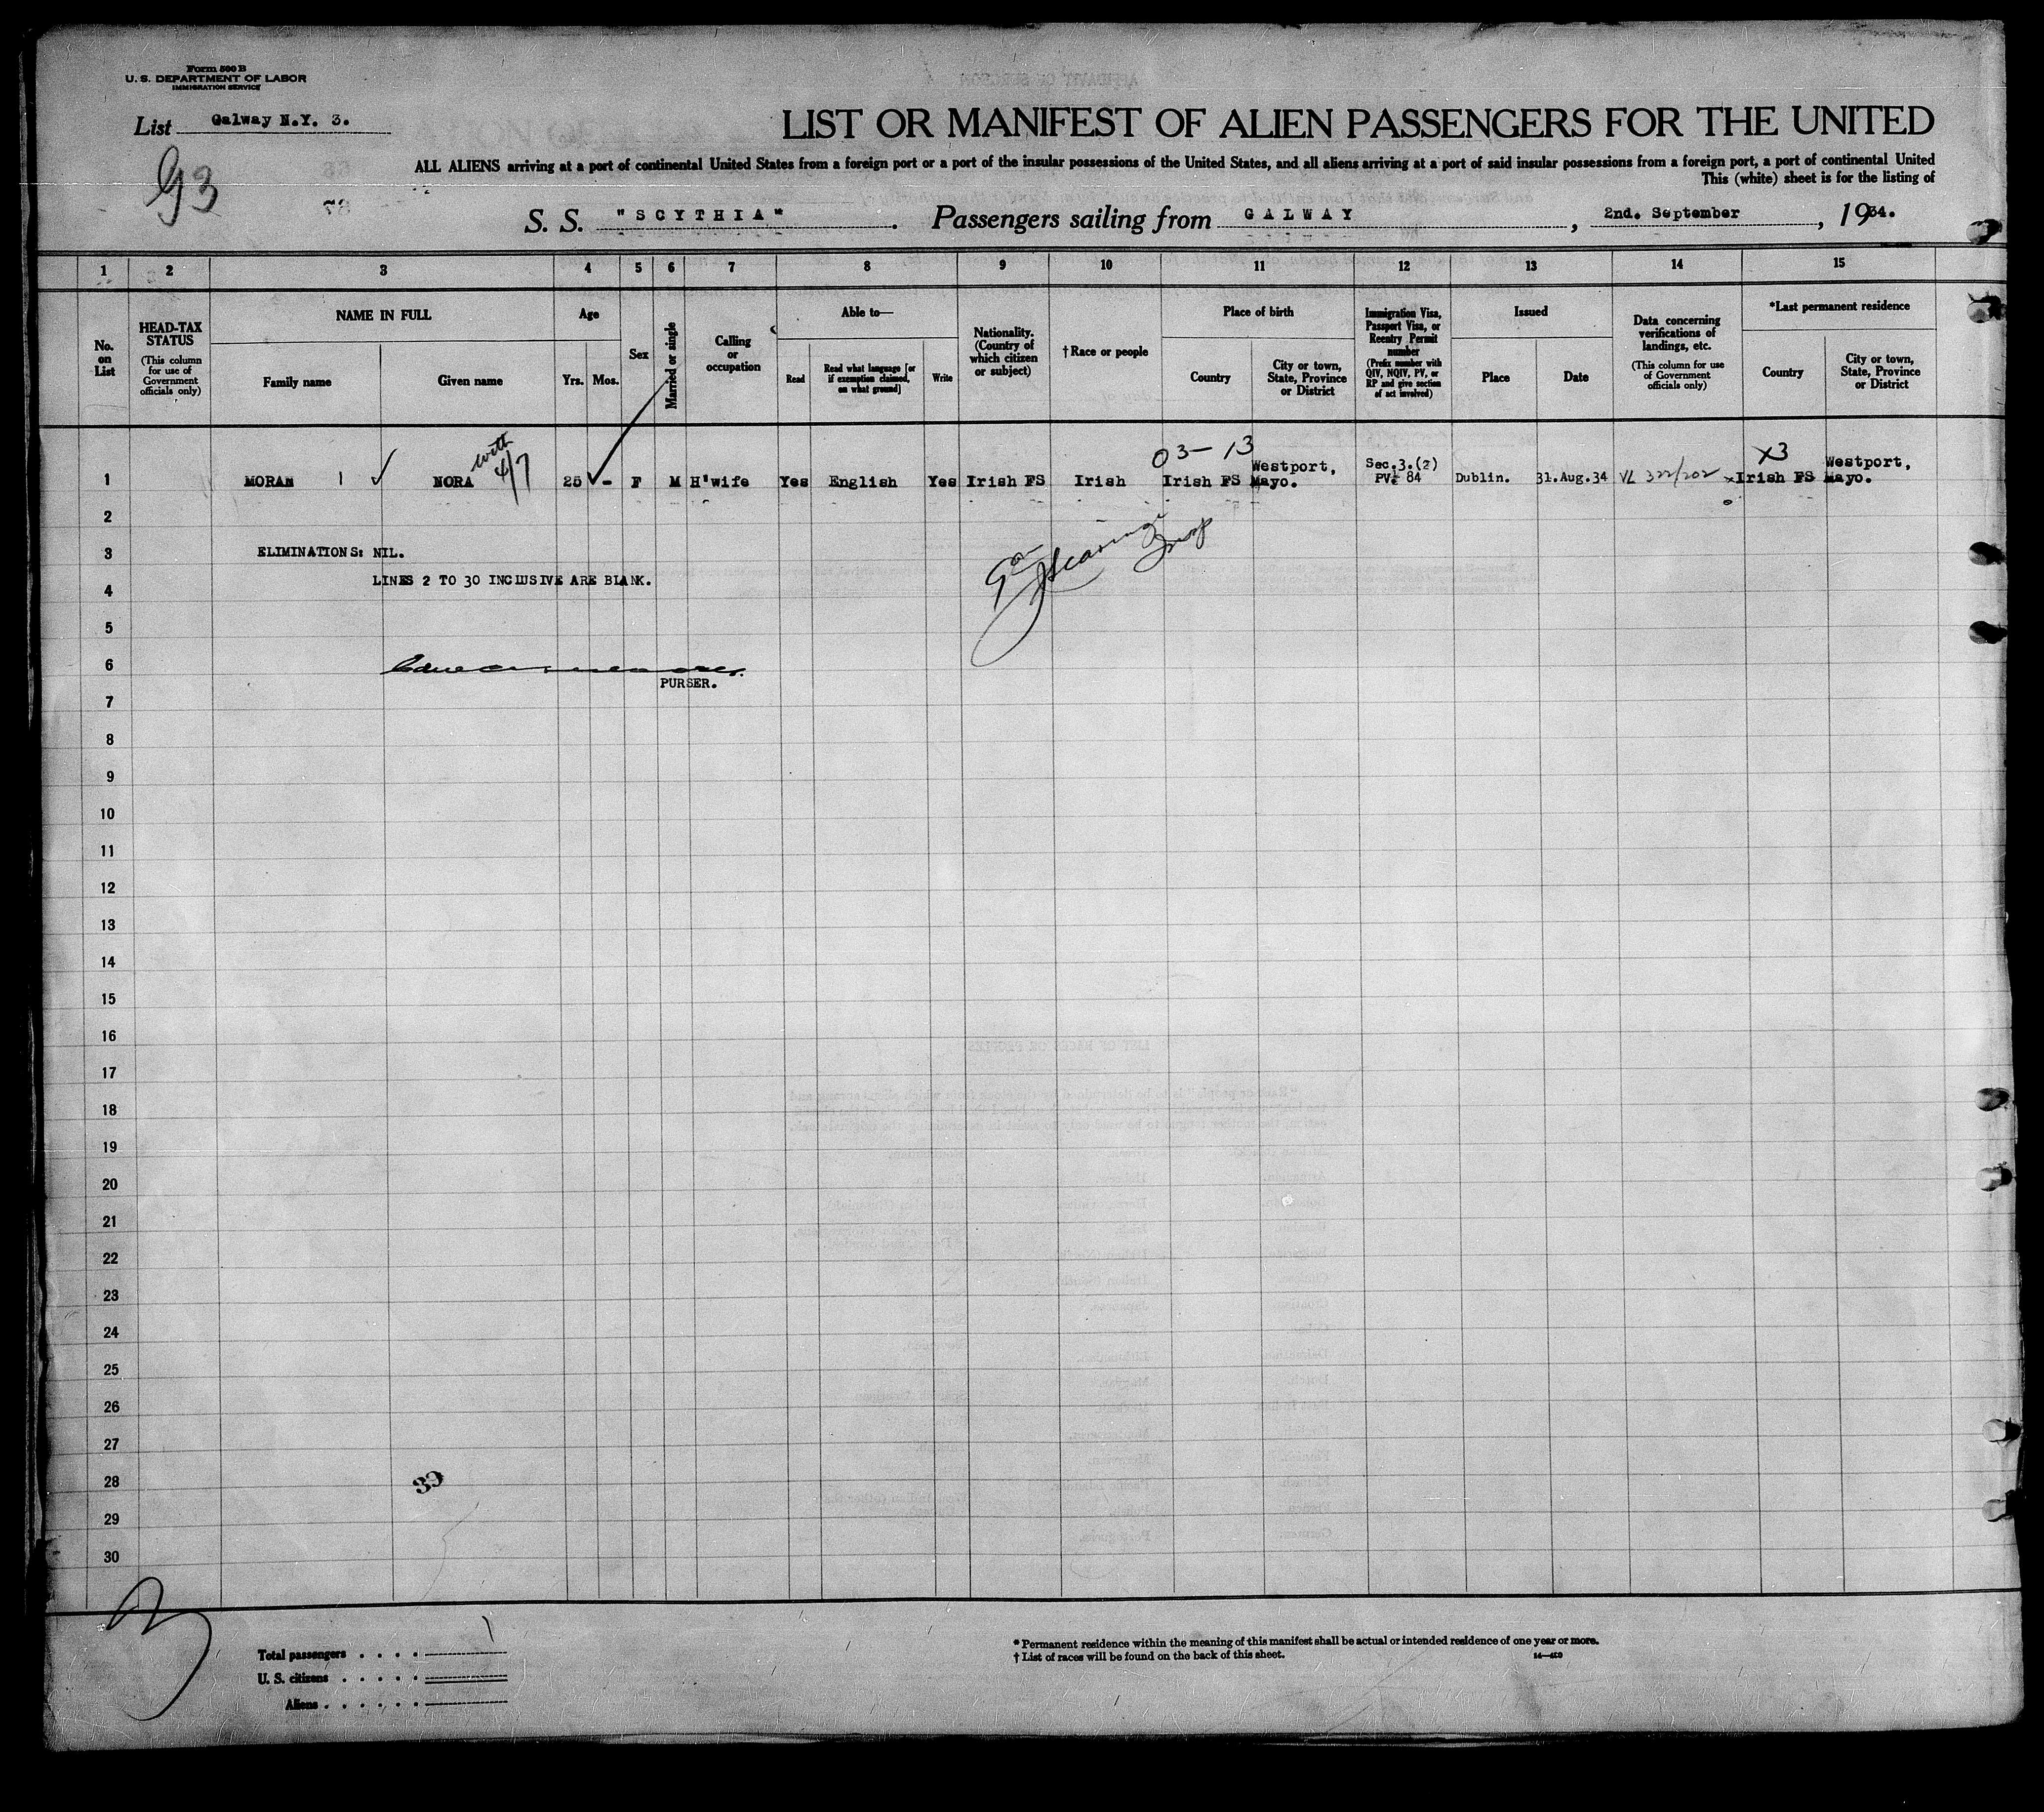 Form 500 B
U. S. DEPARTMENT OF LABOR
IMMIGRATION SERVICE
List Galway N.Y. 3.
G3
78
LIST OR MANIFEST OF ALIEN PASSENGERS FOR THE UNITED
ALL ALIENS arriving at a port of continental United States from a foreign port or a port of the insular possessions of the United States, and all aliens arriving at a port of said insular possessions from a foreign port, a port of continental United
This (white) sheet is for the listing of
S. S. "SCYTHIA". Passengers sailing from GALWAY, 2nd. September, 1934.
1 2 3 4 5 6 7 8 9 10 11 12 13 14 15
No. on List
HEAD-TAX STATUS
(This column for use of Government officials only)
NAME IN FULL
Family name
Given name
Age
Yrs. Mos.
Sex
Married or single
Calling or occupation
Able to—
Read
Read what language [or if exemption claimed, on what ground]
Write
Nationality. (Country of which citizen or subject)
†Race or people
Place of birth
Country
City or town, State, Province or District
Immigration Visa, Passport Visa, or Reentry Permit number
(Prefix number with QIV, NQIV, PV, or RP and give section of act involved)
Issued
Place
Date
Data concerning verifications of landings, etc.
(This column for use of Government officials only)
*Last permanent residence
Country
City or town, State, Province or District
with 4/7
03-13
X3
1 MORAN 1 ✓ NORA 25 ✓ - F M H'wife Yes English Yes Irish FS Irish Irish FS Westport, Mayo. Sec.3.(2) PV 84 Dublin. 31.Aug.34 VL 322/202 xIrish FS Westport, Mayo.
2
3 ELIMINATIONS: NIL.
LINES 2 TO 30 INCLUSIVE ARE BLANK.
4
5
6
PURSER.
7
8
9
10
11
12
13
14
15
16
17
18
19
20
21
22
23
24
25
26
27
28
29
30
Total passengers . . . . 1
U. S. citizens . . . . .
Aliens . . . . . .
* Permanent residence within the meaning of this manifest shall be actual or intended residence of one year or more.
† List of races will be found on the back of this sheet.